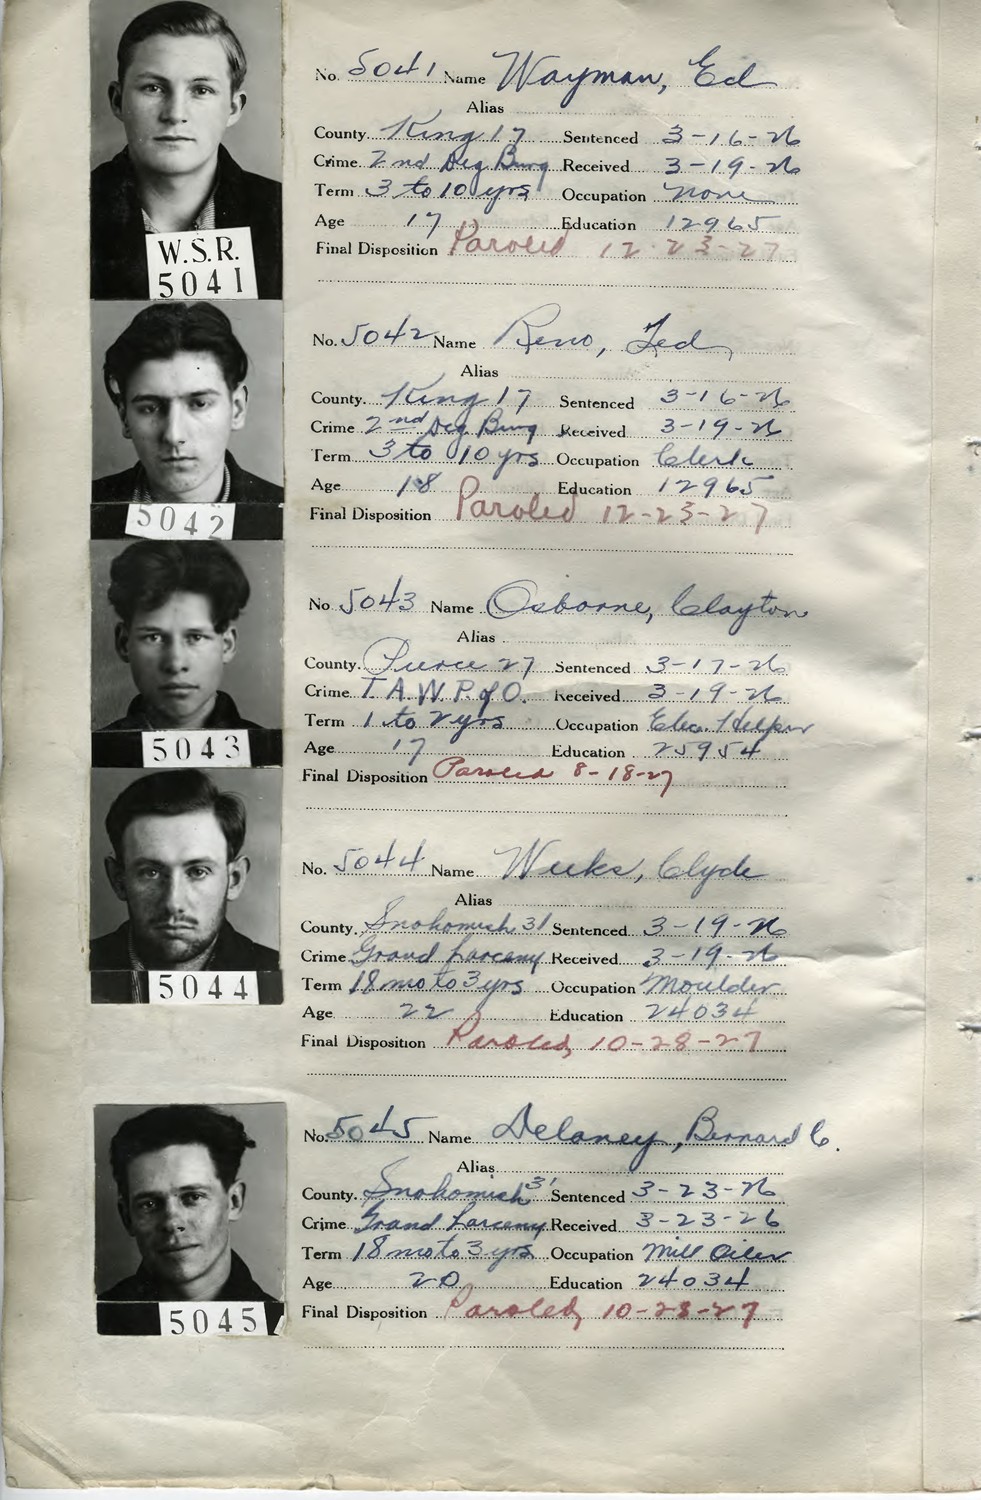 W.S.R.
5041
No. 5041 Name Wayman, Ed
Alias
County. King 17 Sentenced 3-16-26
Crime 2nd Deg Burg Received 3-19-26
Term 3 to 10 yrs Occupation None
Age 17 Education 12965
Final Disposition Paroled 12-23-27
5042
No. 5042 Name Reno, Ted
Alias
County. King 17 Sentenced 3-16-26
Crime 2nd Deg Burg Received 3-19-26
Term 3 to 10 yrs Occupation Clerk
Age 18 Education 12965
Final Disposition Paroled 12-23-27
5043
No. 5043 Name Osborne, Clayton
Alias
County. Pierce 27 Sentenced 3-17-26
Crime T.A.W.P. of O. Received 3-19-26
Term 1 to 2 yrs Occupation Elec. Helper
Age 17 Education 25954
Final Disposition Paroled 8-18-27
5044
No. 5044 Name Weeks, Clyde
Alias
County. Snohomish 31 Sentenced 3-19-26
Crime Grand Larceny Received 3-19-26
Term 18 mo to 3 yrs Occupation Moulder
Age 22 Education 24034
Final Disposition Paroled, 10-28-27
5045
No. 5045 Name Delaney, Bernard C.
Alias
County. Snohomish 31 Sentenced 3-23-26
Crime Grand Larceny Received 3-23-26
Term 18 mo to 3 yrs Occupation Mill Oiler
Age 20 Education 24034
Final Disposition Paroled, 10-28-27